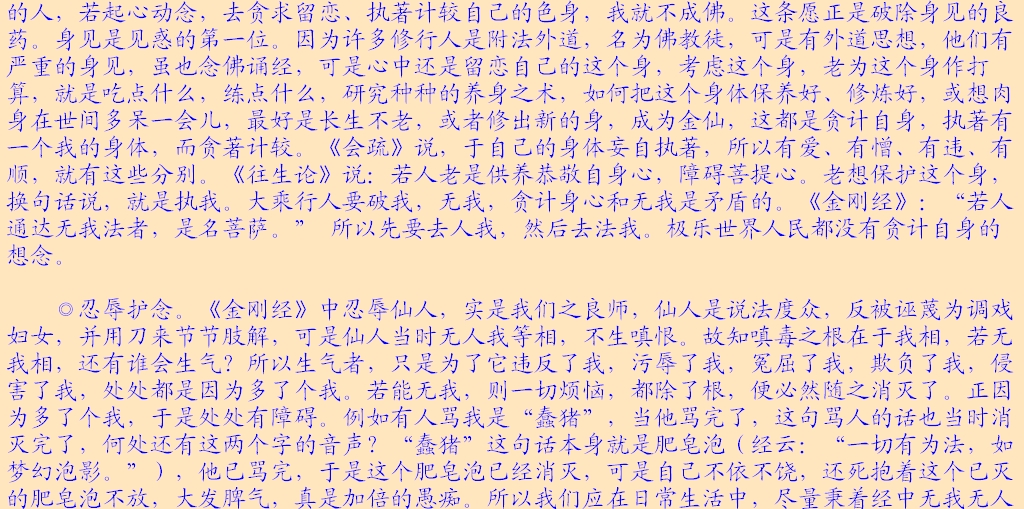 的人，若起心动念，去贪求留恋、执著计较自己的色身，我就不成佛。这条愿正是破除身见的良
药。身见是见惑的第一位。因为许多修行人是附法外道，名为佛教徒，可是有外道思想，他们有
严重的身见，虽也念佛诵经，可是心中还是留恋自己的这个身，考虑这个身，老为这个身作打
算，就是吃点什么，练点什么，研究种种的养身之术，如何把这个身体保养好、修炼好，或想肉
身在世间多呆一会儿，最好是长生不老，或者修出新的身，成为金仙，这都是贪计自身，执著有
一个我的身体，而贪著计较。《会疏》说，于自己的身体妄自执著，所以有爱、有憎、有违、有
顺，就有这些分别。《往生论》说：若人老是供养恭敬自身心，障碍菩提心。老想保护这个身，
换句话说，就是执我。大乘行人要破我，无我，贪计身心和无我是矛盾的。《金刚经》：“若人
通达无我法者，是名菩萨。” 所以先要去人我，然后去法我。极乐世界人民都没有贪计自身的
想念。
◎忍辱护念。《金刚经》中忍辱仙人，实是我们之良师，仙人是说法度众，反被诬蔑为调戏
妇女，并用刀来节节肢解，可是仙人当时无人我等相，不生嗔恨。故知嗔毒之根在于我相，若无
我相，还有谁会生气？所以生气者，只是为了它违反了我，污辱了我，冤屈了我，欺负了我，侵
害了我，处处都是因为多了个我。若能无我，则一切烦恼，都除了根，便必然随之消灭了。正因
为多了个我，于是处处有障碍。例如有人骂我是“蠢猪”，当他骂完了，这句骂人的话也当时消
灭完了，何处还有这两个字的音声？“蠢猪”这句话本身就是肥皂泡（经云：“一切有为法，如
梦幻泡影。”），他已骂完，于是这个肥皂泡已经消灭，可是自己不依不饶，还死抱着这个已灭
的肥皂泡不放，大发脾气，真是加倍的愚痴。所以我们应在日常生活中，尽量秉着经中无我无人